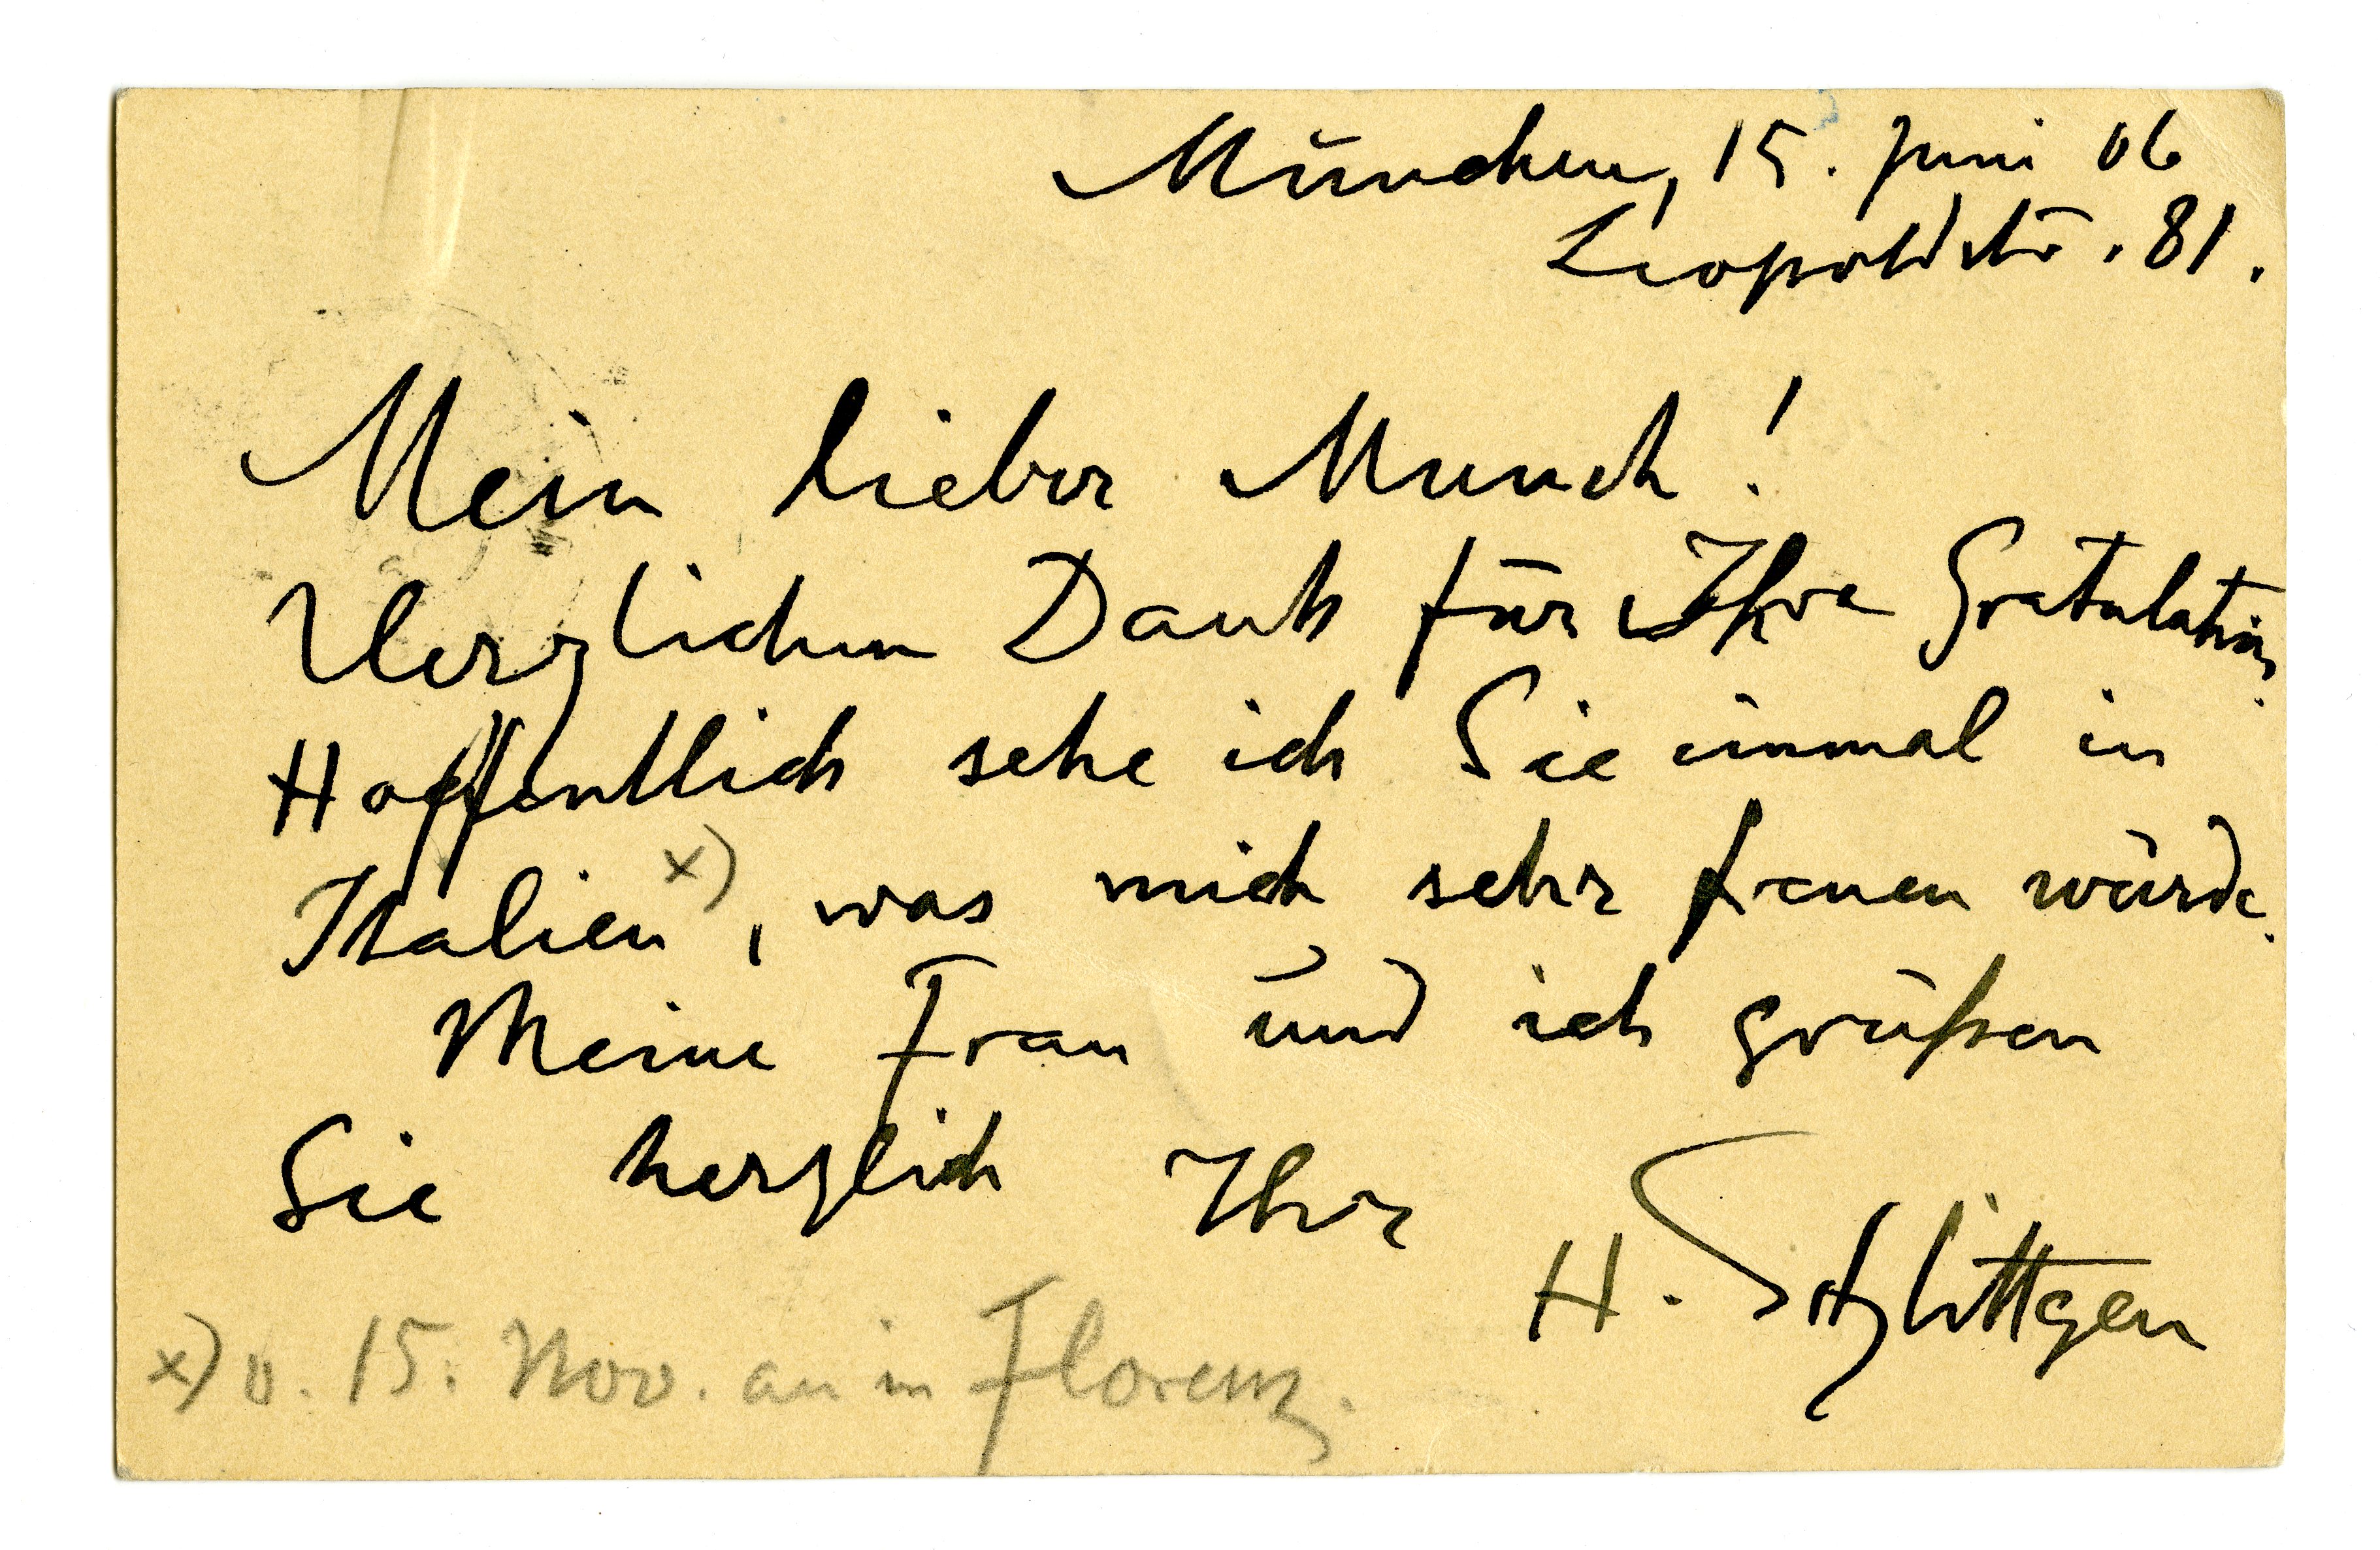 München, 15. Juni 06
Leopoldstr. 81.
Mein lieber Munch!
Herzlichen Dank für Ihre Gratulation.
Hoffentlich sehe ich Sie einmal in
Italien x), was mich sehr freuen würde.
Meine Frau und ich grüßen
Sie herzlich Ihr
H. Schlittgen
x) v. 15. Nov. an in Florenz.